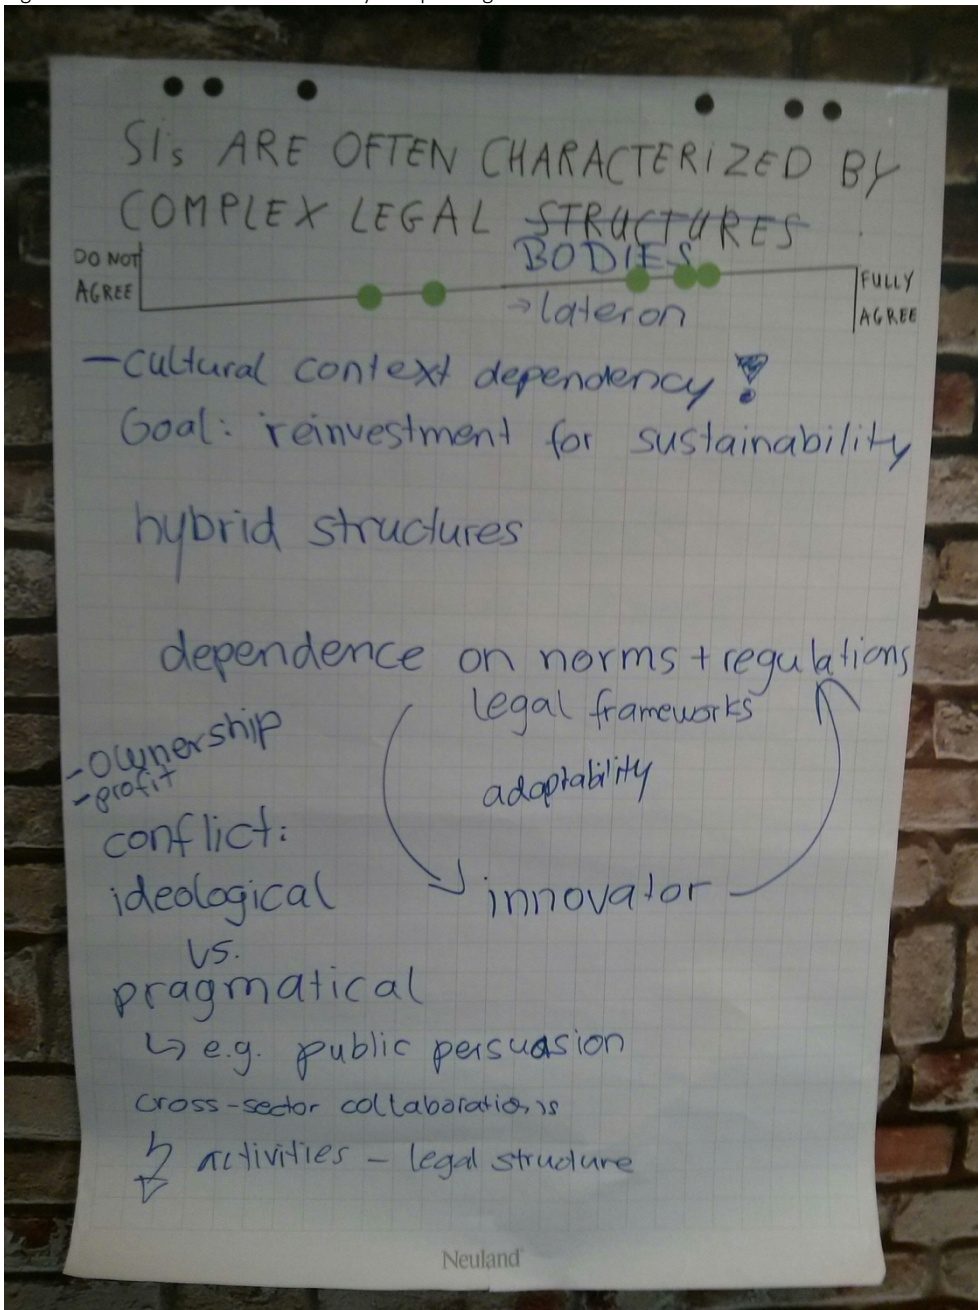 SIs ARE OFTEN CHARACTERIZED BY
COMPLEX LEGAL STRUCTURES
BODIES
DO NOT
AGREE
FULLY
AGREE
→ lateron
- cultural context dependency !
Goal: reinvestment for sustainability
hybrid structures
dependence on norms + regulations
legal frameworks
adaptability
innovator
- ownership
- profit
conflict:
ideological
vs.
pragmatical
↳ e.g. public persuasion
cross-sector collaborations
activities - legal structure
Neuland